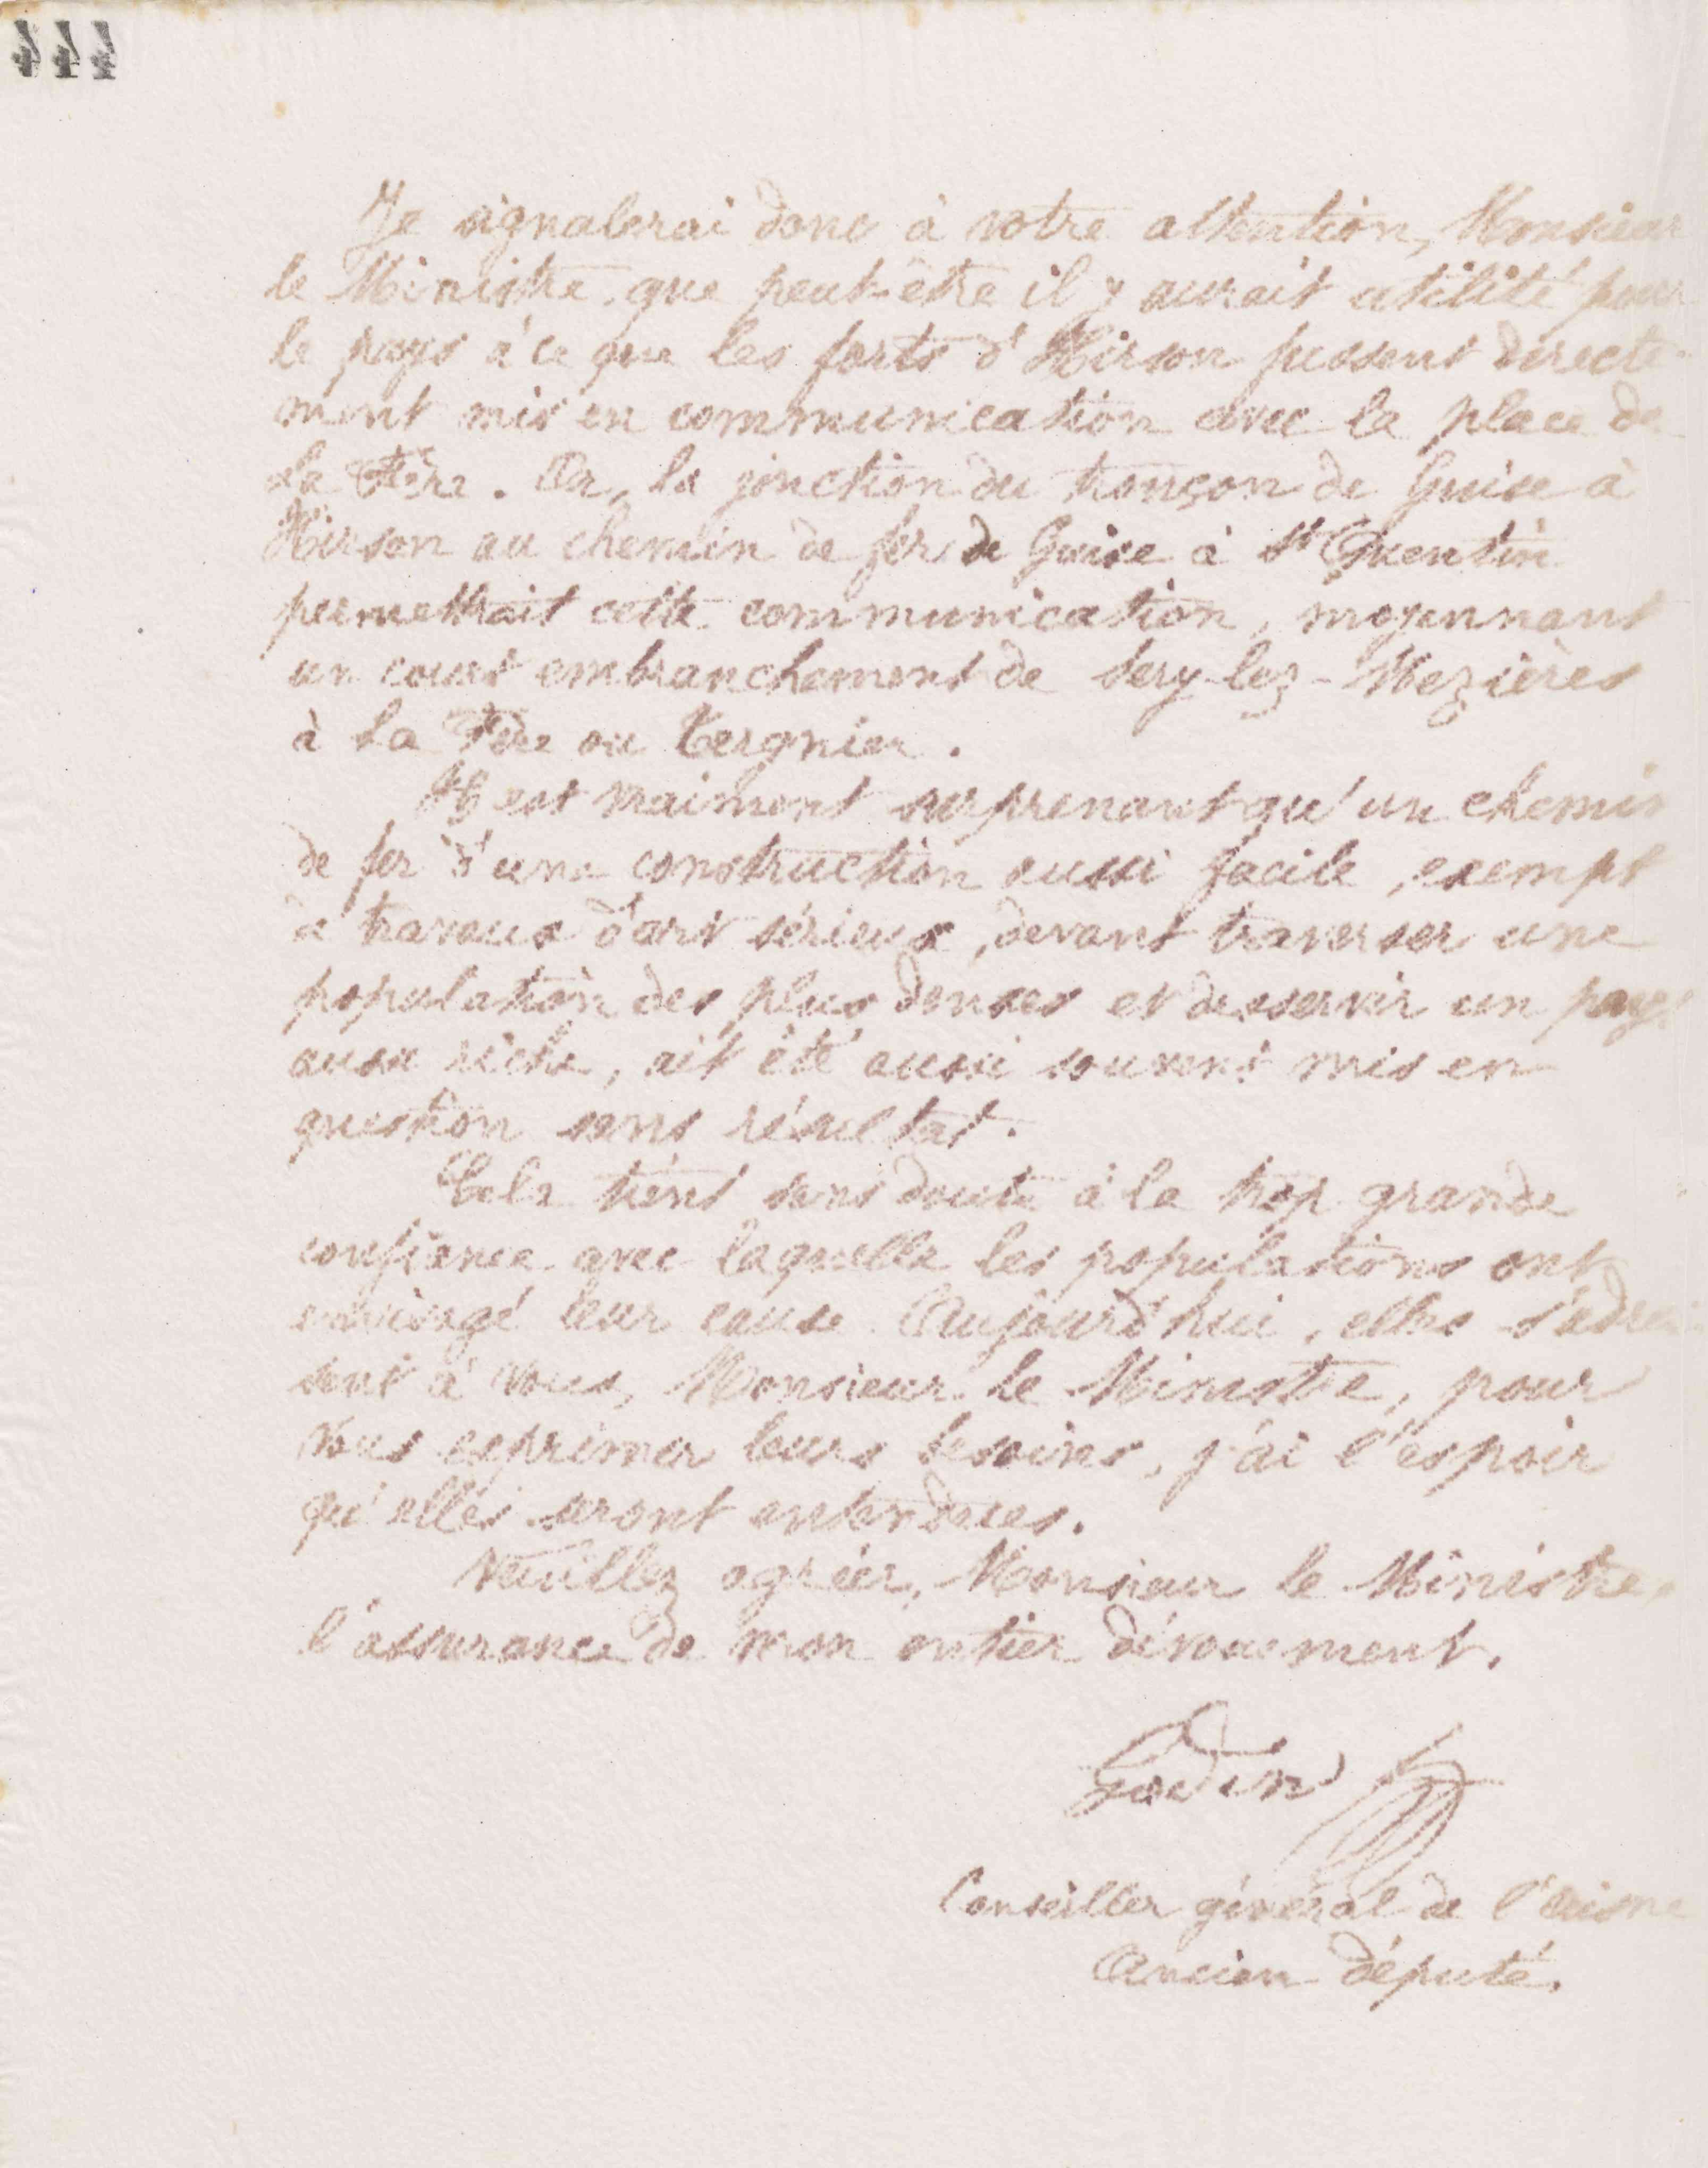 Je signalerai donc à votre attention, Monsieur
le Ministre que peut-être il y aurait utilité pour
le pays à ce que les forts d'Hirson fussent directe-
ment mis en communication avec la place de
La Fère. Or, la jonction du tronçon de Guise à
Hirson au chemin de fer de Guise à St Quentin
permettrait cette communication, moyennant
un court embranchement de Sery-lez-Mezières
à La Fère ou Tergnier.
Il est vraiment surprenant qu'un chemin
de fer d'une construction aussi facile, exempt
de travaux d'art sérieux, devant traverser une
population des plus denses et desservir un pays
aussi riche, ait été aussi souvent mis en
question sans résultat.
Cela tient sans doute à la trop grande
confiance avec laquelle les populations ont
envisagé leur cause. Aujourd'hui, elles s'adres-
sent à vous, Monsieur le Ministre, pour
vous exprimer leurs besoins, j'ai l'espoir
qu'elles seront entendues.
Veuillez agréer, Monsieur le Ministre,
l'assurance de mon entier dévouement.
Godin
Conseiller général de l'Aisne
Ancien député.